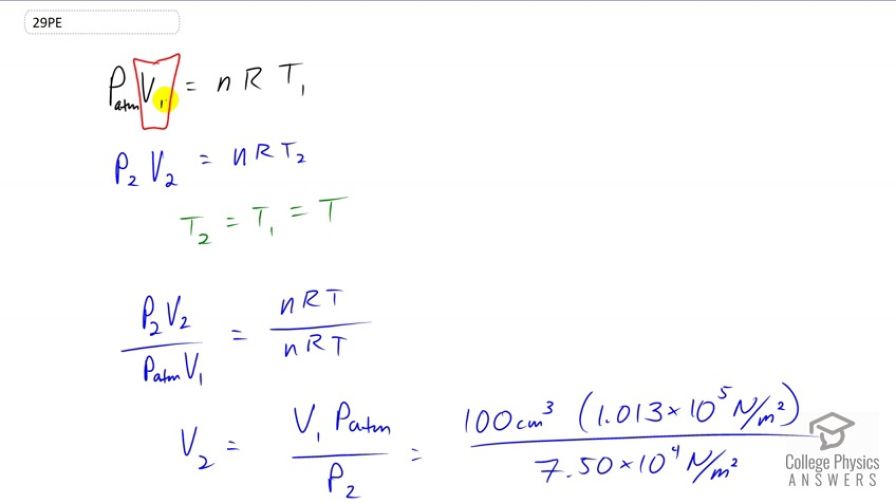 29PE
P_atm V_1 = n R T_1
P_2 V_2 = n R T_2
T_2 = T_1 = T
P_2 V_2 / P_atm V_1 = n R T / n R T
V_2 = V_1 P_atm / P_2 = 100 cm³ (1.013 × 10⁵ N/m²) / 7.50 × 10⁴ N/m²
College Physics
ANSWERS